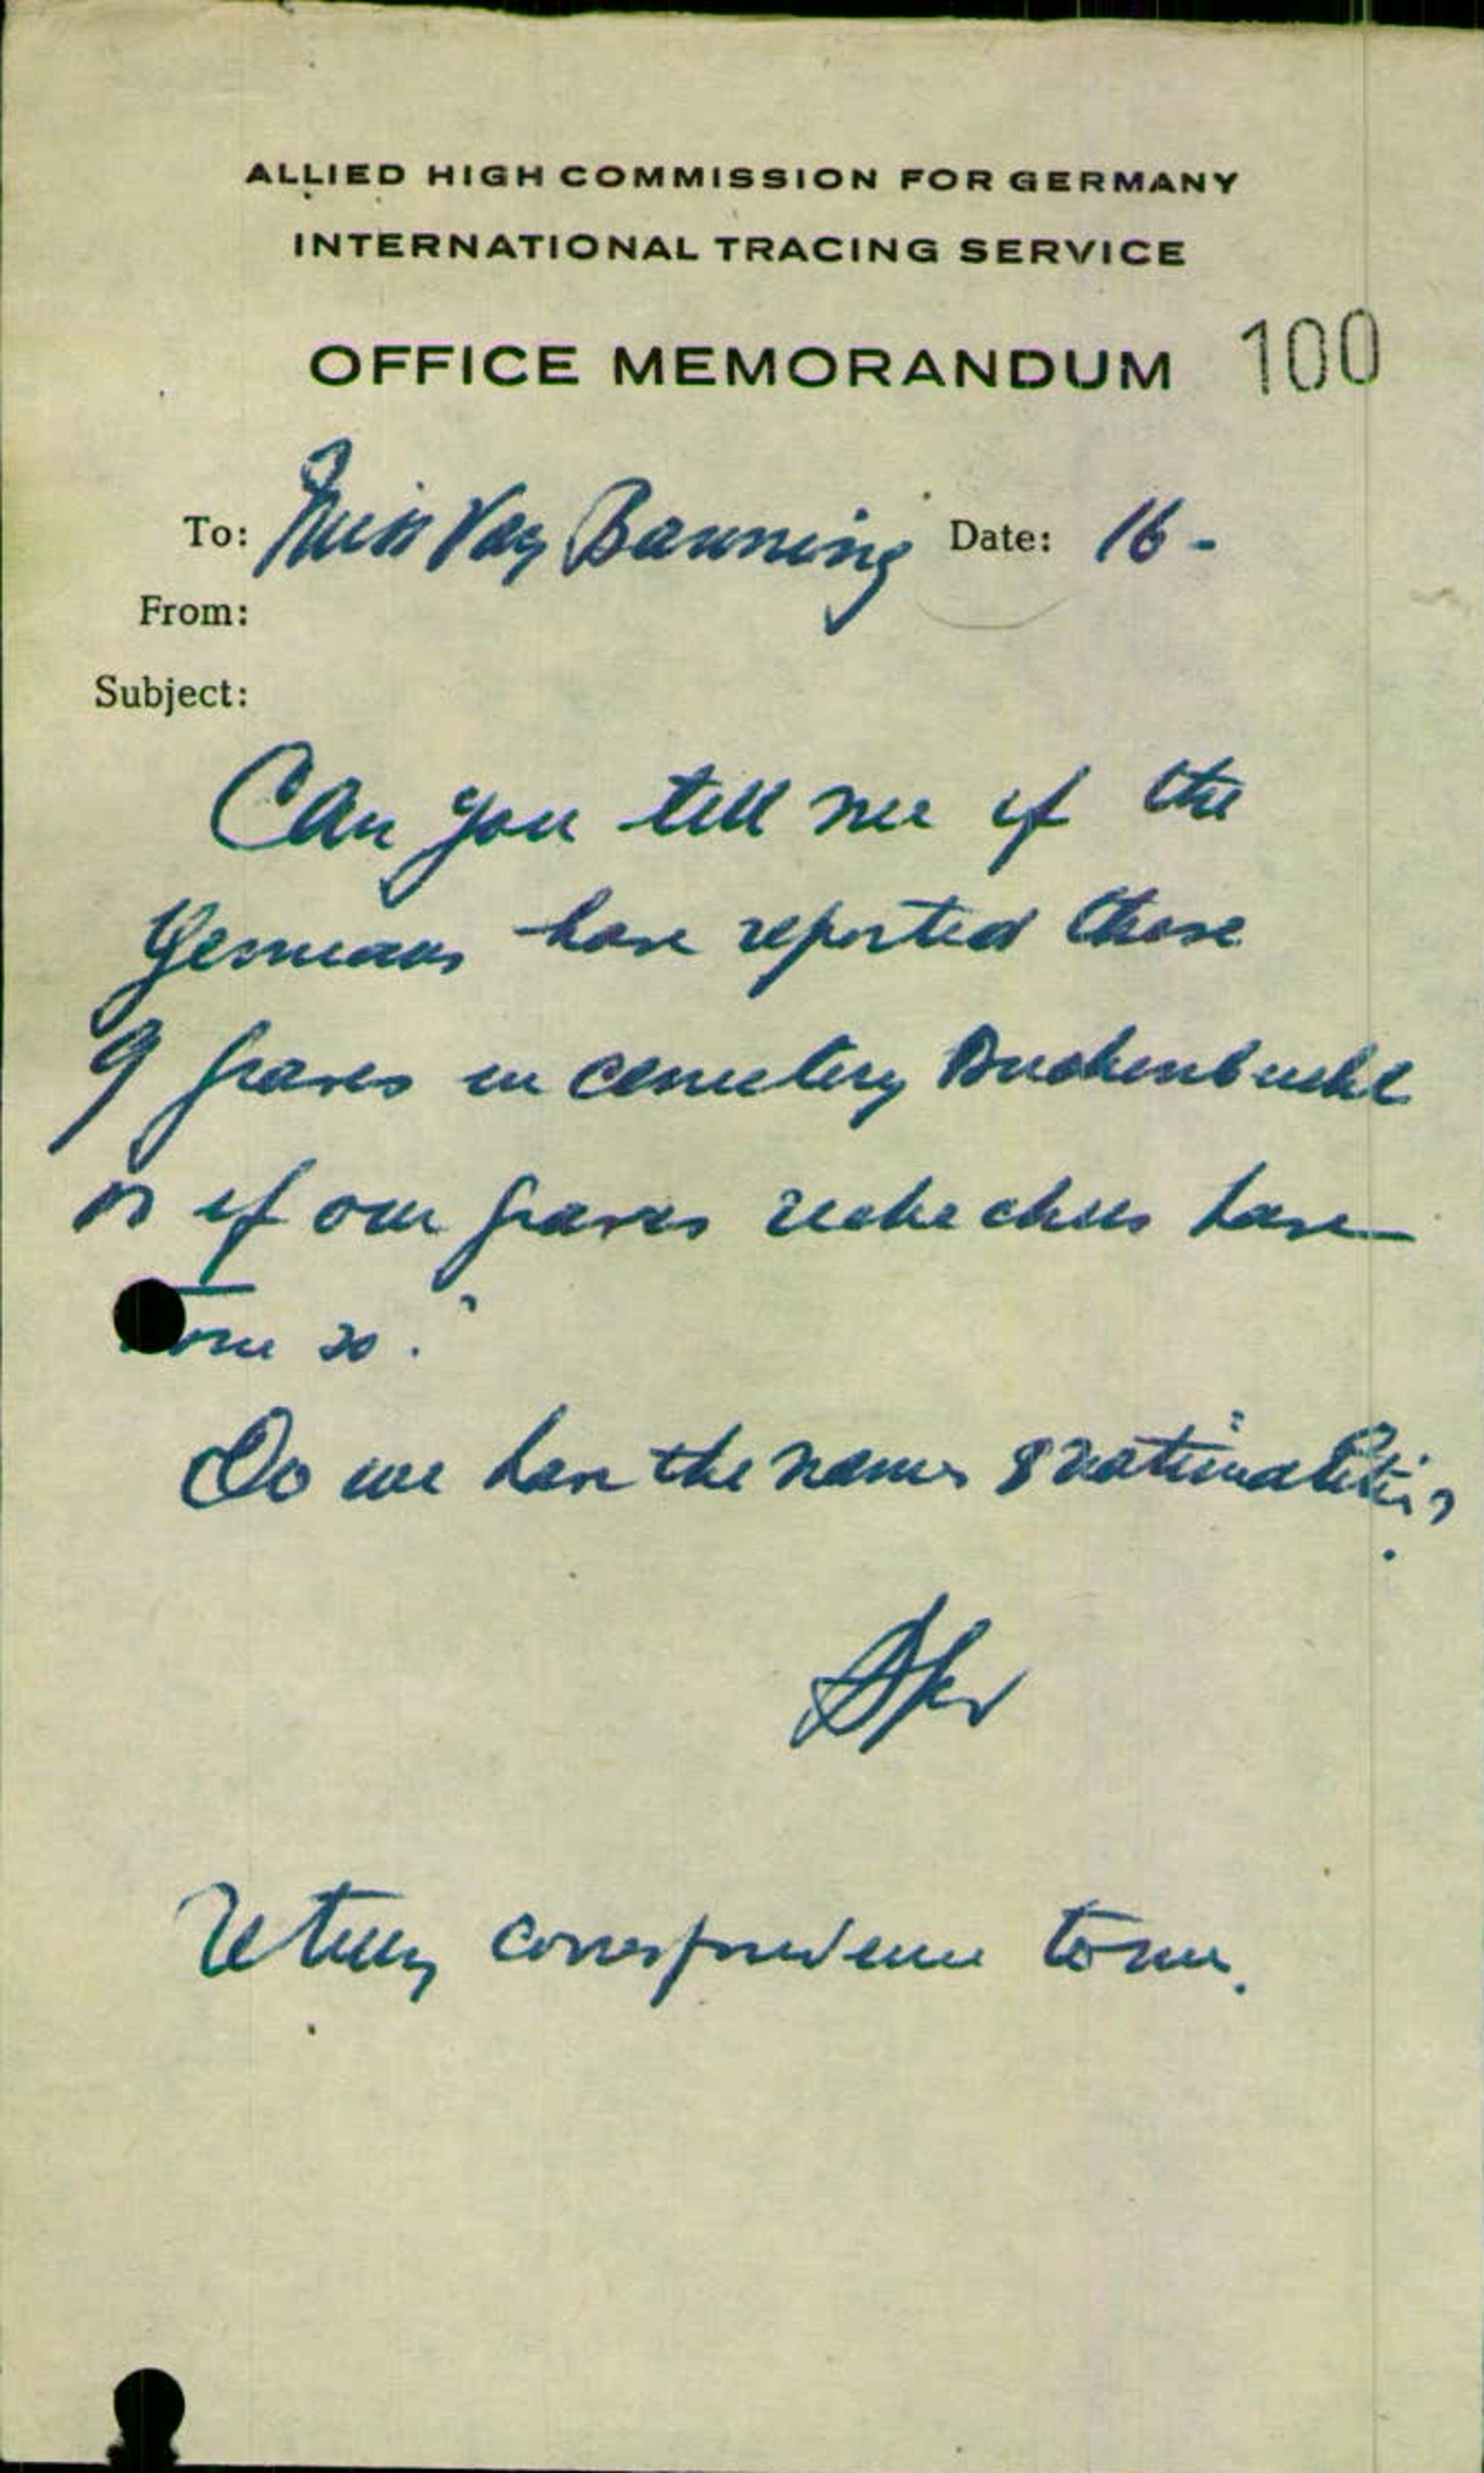 ALLIED HIGH COMMISSION FOR GERMANY
INTERNATIONAL TRACING SERVICE
OFFICE MEMORANDUM 100
To: Miss Banning Date: 16 -
From:
Subject:
Can you tell me if the
Germans have reported these
9 graves in cemetery
or if our graves have
so.
Do we have the names & nationalities?
Return correspondence to me.